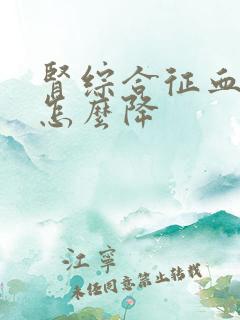 腎综合征血
怎麼降
江寧
未经同意禁止转载